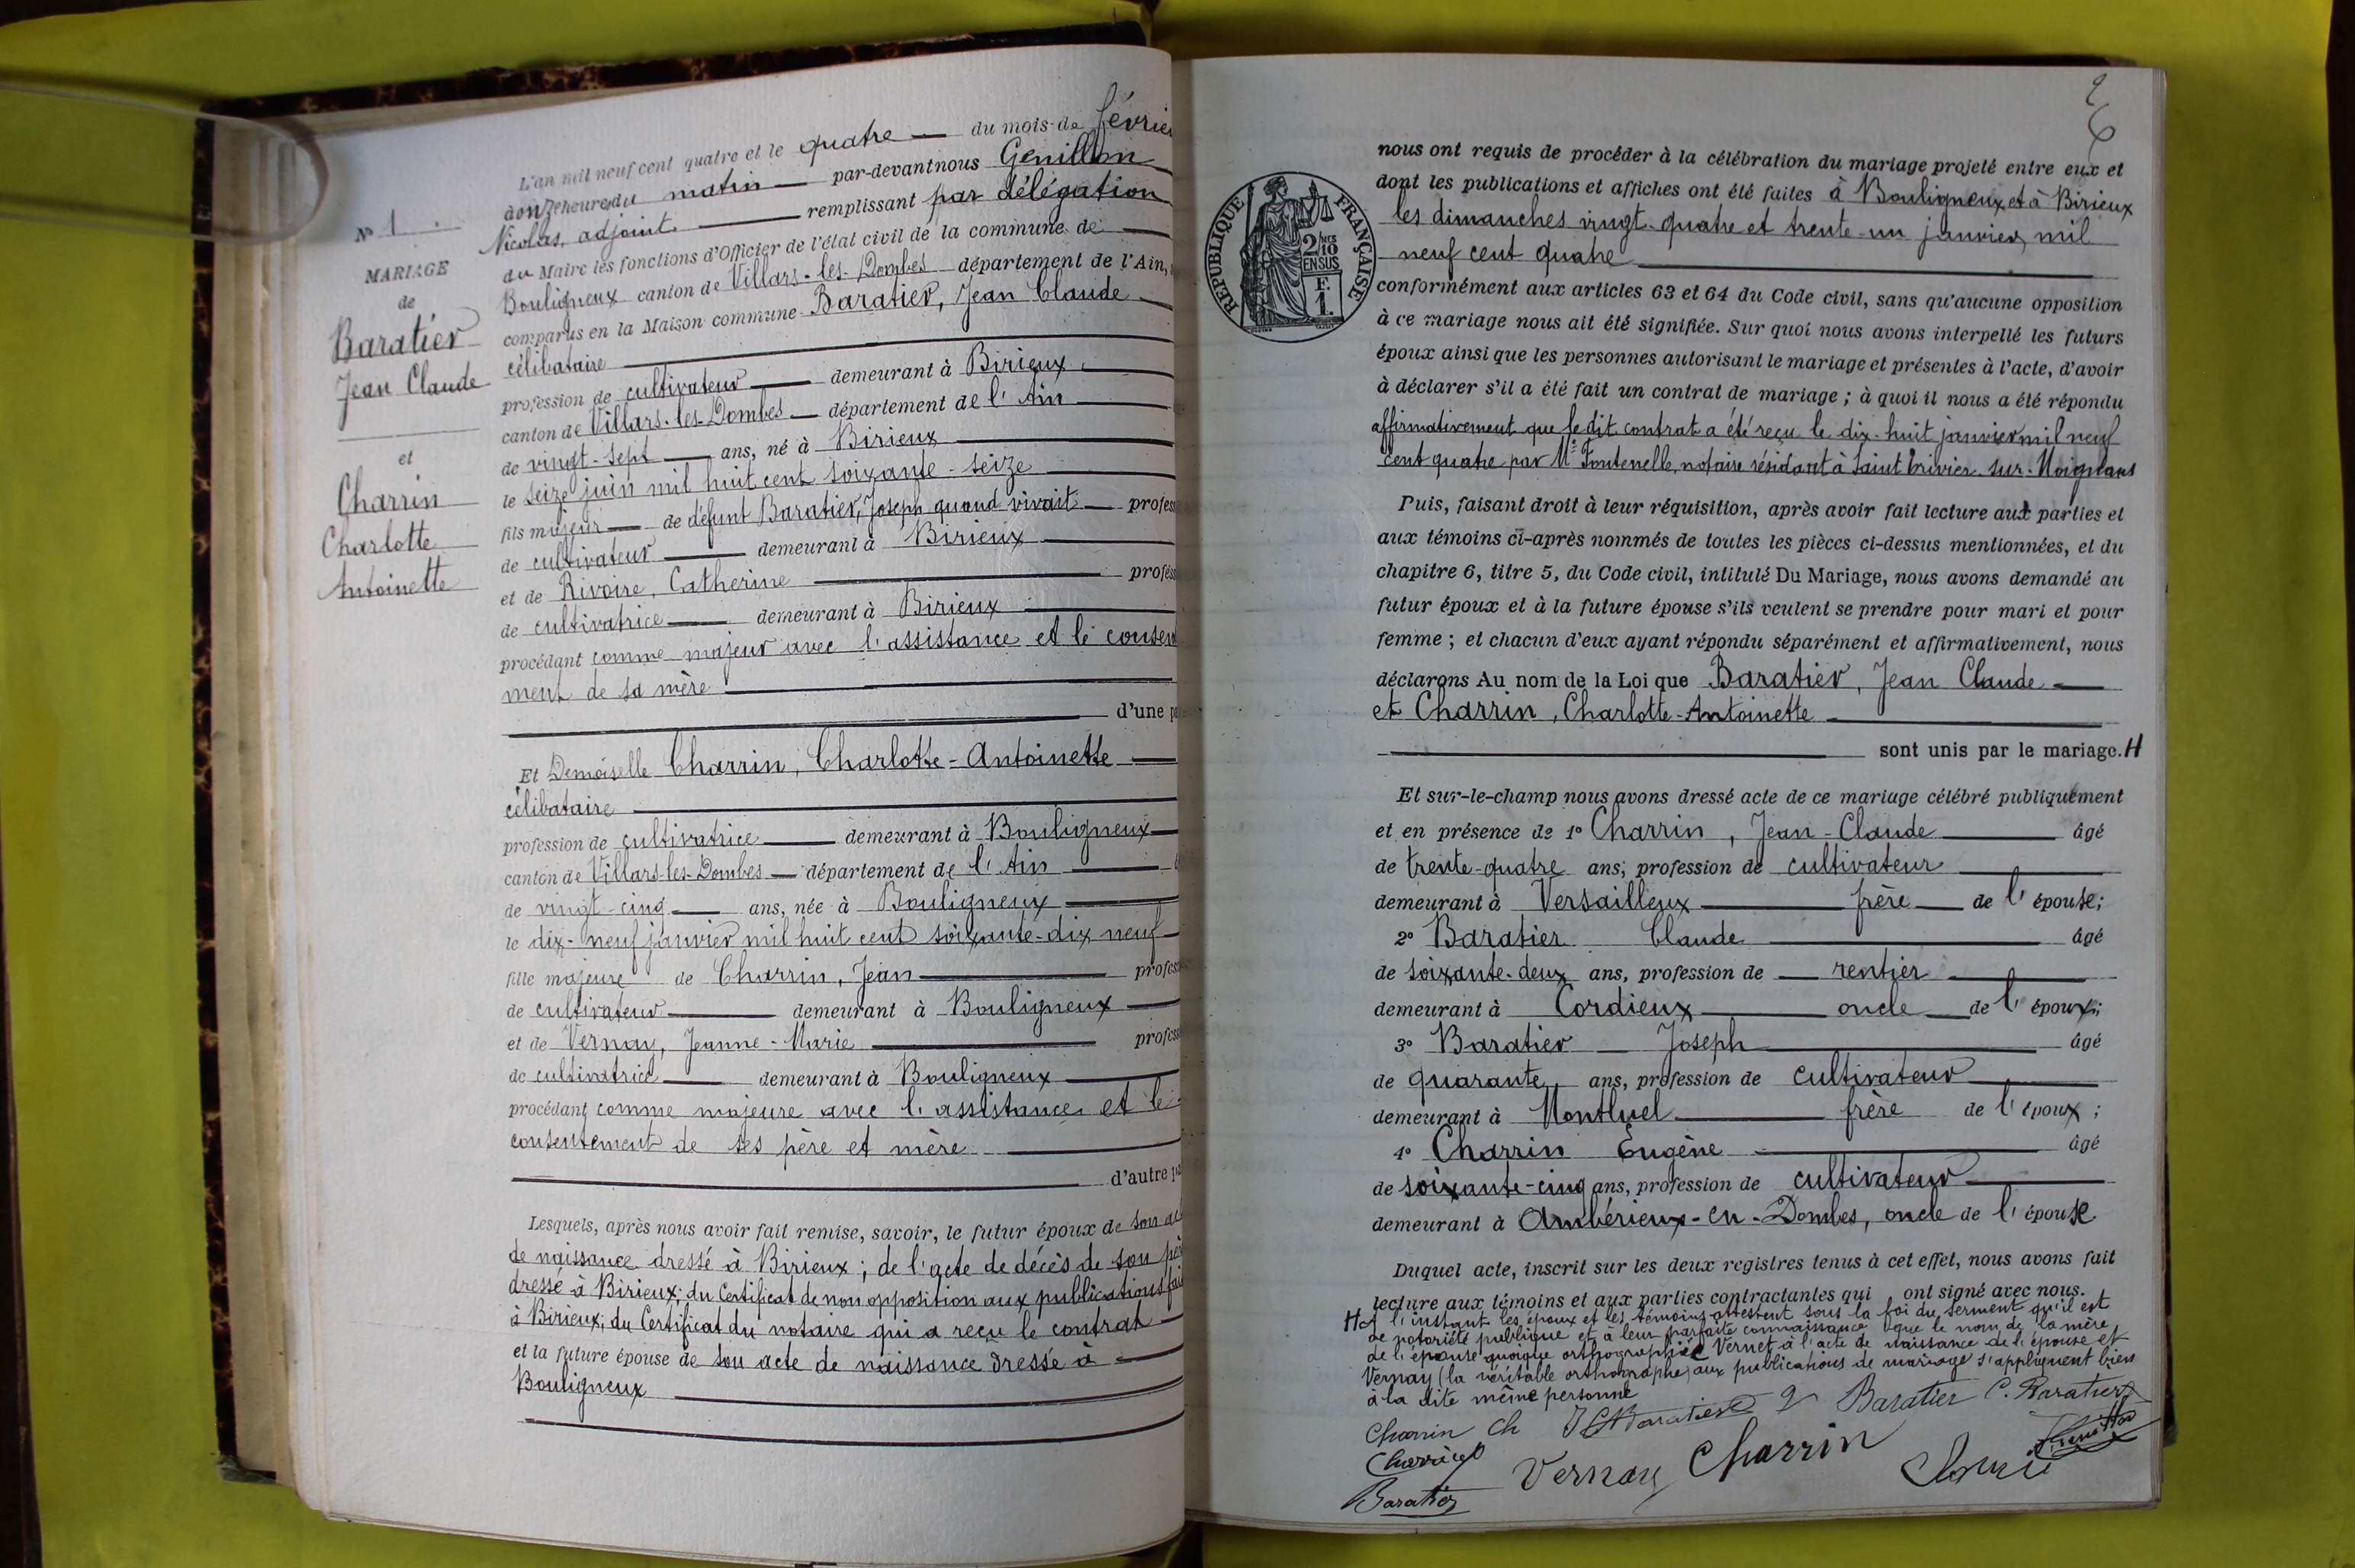 N° 1.
MARIAGE
de
Baratier
Jean Claude
et
Charrin
Charlotte
Antoinette
L'an mil neuf cent quatre et le quatre — du mois de février
à onze heures du matin — par-devant nous Genillon
Nicolas, adjoint — remplissant par délégation
du Maire les fonctions d'Officier de l'état civil de la commune de —
Bouligneux canton de Villars-les-Dombes département de l'Ain,
comparus en la Maison commune Baratier, Jean Claude
célibataire
profession de cultivateur — demeurant à Birieux
canton de Villars-les-Dombes — département de l'Ain
de vingt-sept — ans, né à Birieux
le seize juin mil huit cent soixante-seize
fils majeur — de défunt Baratier, Joseph quand vivait — profes
de cultivateur — demeurant à Birieux
et de Rivoire, Catherine — profess
de cultivatrice — demeurant à Birieux
procédant comme majeur avec l'assistance et le consen
ment de sa mère
d'une p
Et Demoiselle Charrin, Charlotte-Antoinette
célibataire
profession de cultivatrice — demeurant à Bouligneux
canton de Villars-les-Dombes — département de l'Ain
de vingt-cinq — ans, née à Bouligneux
le dix-neuf janvier mil huit cent soixante-dix neuf
fille majeure de Charrin, Jean — profess
de cultivateur — demeurant à Bouligneux
et de Vernay, Jeanne-Marie — profess
de cultivatrice — demeurant à Bouligneux
procédant comme majeure avec l'assistance et le
consentement de ses père et mère
d'autre pa
Lesquels, après nous avoir fait remise, savoir, le futur époux de son ac
de naissance dressé à Birieux; de l'acte de décès de son pèr
dressé à Birieux; du Certificat de non opposition aux publications fai
à Birieux; du Certificat du notaire qui a reçu le contrat
et la future épouse de son acte de naissance dressé à
Bouligneux
2
nous ont requis de procéder à la célébration du mariage projeté entre eux et
dont les publications et affiches ont été faites à Bouligneux et à Birieux
les dimanches vingt-quatre et trente-un janvier, mil
neuf cent quatre
RÉPUBLIQUE FRANÇAISE
2/10 EN SUS
F. 1.
conformément aux articles 63 et 64 du Code civil, sans qu'aucune opposition
à ce mariage nous ait été signifiée. Sur quoi nous avons interpellé les futurs
époux ainsi que les personnes autorisant le mariage et présentes à l'acte, d'avoir
à déclarer s'il a été fait un contrat de mariage; à quoi il nous a été répondu
affirmativement que le dit contrat a été reçu le dix-huit janvier mil neuf
cent quatre par Me Fontenelle, notaire résidant à Saint Trivier-sur-Moignans
Puis, faisant droit à leur réquisition, après avoir fait lecture aux parties et
aux témoins ci-après nommés de toutes les pièces ci-dessus mentionnées, et du
chapitre 6, titre 5, du Code civil, intitulé Du Mariage, nous avons demandé au
futur époux et à la future épouse s'ils veulent se prendre pour mari et pour
femme; et chacun d'eux ayant répondu séparément et affirmativement, nous
déclarons Au nom de la Loi que Baratier, Jean Claude —
et Charrin, Charlotte-Antoinette
sont unis par le mariage. H
Et sur-le-champ nous avons dressé acte de ce mariage célébré publiquement
et en présence de 1° Charrin, Jean-Claude — âgé
de trente-quatre ans, profession de cultivateur
demeurant à Versailleux — frère — de l'épouse;
2° Baratier Claude — âgé
de soixante-deux ans, profession de — rentier
demeurant à Cordieux — oncle — de l'époux;
3° Baratier — Joseph — âgé
de quarante ans, profession de cultivateur
demeurant à Montluel — frère de l'époux;
4° Charrin Eugène — âgé
de soixante-cinq ans, profession de cultivateur
demeurant à Ambérieux-en-Dombes, oncle de l'épouse.
Duquel acte, inscrit sur les deux registres tenus à cet effet, nous avons fait
lecture aux témoins et aux parties contractantes qui ont signé avec nous.
H A l'instant les époux et les témoins attestent sous la foi du serment qu'il est
de notoriété publique et à leur parfaite connaissance que le nom de la mère
de l'épouse quoique orthographié Vernet à l'acte de naissance de l'épouse et
Vernay (la véritable orthographe) aux publications de mariage s'appliquent bien
à la dite même personne
Charrin Ch J C Baratier J Baratier C. Baratier
Charrin Vernay Charrin Genillon
Baratier